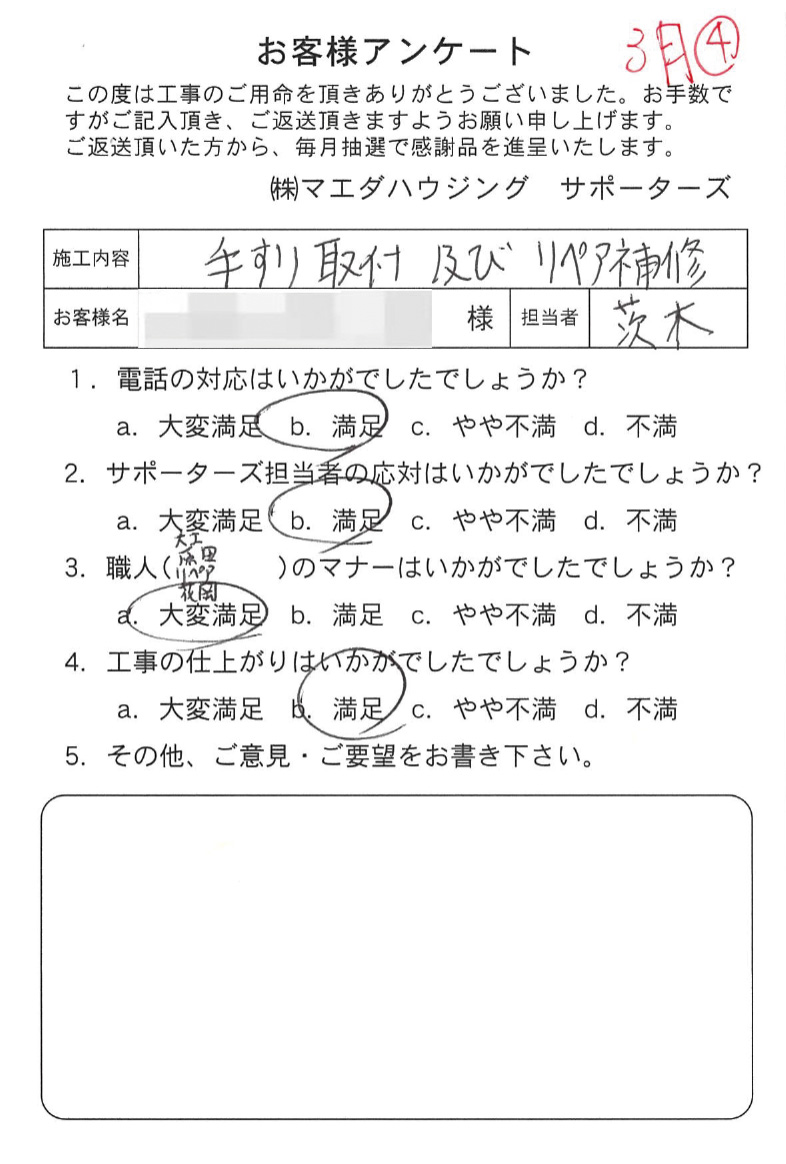 お客様アンケート
3月④
この度は工事のご用命を頂きありがとうございました。お手数で
すがご記入頂き、ご返送頂きますようお願い申し上げます。
ご返送頂いた方から、毎月抽選で感謝品を進呈いたします。
㈱マエダハウジング サポーターズ
施工内容 手すり取付 及び リペア補修
お客様名 様 担当者 茨木
1. 電話の対応はいかがでしたでしょうか?
a. 大変満足 b. 満足 c. やや不満 d. 不満
2. サポーターズ担当者の応対はいかがでしたでしょうか?
a. 大変満足 b. 満足 c. やや不満 d. 不満
大工
田
リペア
花岡
3. 職人( )のマナーはいかがでしたでしょうか?
a. 大変満足 b. 満足 c. やや不満 d. 不満
4. 工事の仕上がりはいかがでしたでしょうか?
a. 大変満足 b. 満足 c. やや不満 d. 不満
5. その他、ご意見・ご要望をお書き下さい。